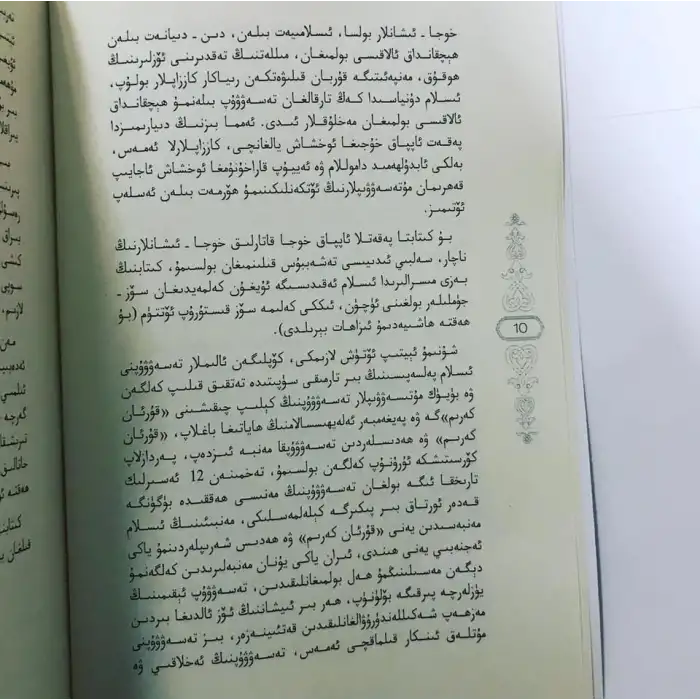 خوجا ـ ئىشانلار بولسا، ئىسلامىيەت بىلەن، دىن ـ دىيانەت بىلەن
ھېچقانداق ئالاقىسى بولمىغان، مىللەتنىڭ تەقدىرىنى ئۆزلىرىنىڭ
ھوقۇق، مەنپەئىتىگە قۇربان قىلىۋەتكەن رىياكار كاززاپلار بولۇپ،
ئىسلام دۇنياسىدا كەڭ تارقالغان تەسەۋۋۇپ بىلەنمۇ ھېچقانداق
ئالاقىسى بولمىغان مەخلۇقلار ئىدى. ئەمما بىزنىڭ دىيارىمىزدا
پەقەت ئاپپاق خوجىغا ئوخشاش يالغانچى، كاززاپلارلا ئەمەس،
بەلكى ئابدۇلھەمىد داموللام ۋە ئەييۇپ قاراخۇنۇمغا ئوخشاش ئاجايىپ
قەھرىمان مۇتەسەۋۋىپلارنىڭ ئۆتكەنلىكىنىمۇ ھۆرمەت بىلەن ئەسلەپ
ئۆتىمىز.
بۇ كىتابتا پەقەتلا ئاپپاق خوجا قاتارلىق خوجا ـ ئىشانلارنىڭ
ناچار، سەلبىي ئىدىيىسى تەشەببۇس قىلىنمىغان بولسىمۇ، كىتابنىڭ
بەزى مىسرالىرىدا ئىسلام ئەقىدىسىگە ئۇيغۇن كەلمەيدىغان سۆز ـ
جۈملىلەر بولغىنى ئۈچۈن، ئىككى كەلىمە سۆز قىستۇرۇپ ئۆتتۈم (بۇ
ھەقتە ھاشىيەدىمۇ ئىزاھات بېرىلدى).
10
شۇنىمۇ ئېيتىپ ئۆتۈش لازىمكى، كۆپلىگەن ئالىملار تەسەۋۋۇپنى
ئىسلام پەلسەپىسىنىڭ بىر تارمىقى سۈپىتىدە تەتقىق قىلىپ كەلگەن
ۋە بۈيۈك مۇتىسەۋۋىپلار تەسەۋۋۇپنىڭ كېلىپ چىقىشىنى «قۇرئان
كەرىم»گە ۋە پەيغەمبەر ئەلەيھىسسالامنىڭ ھاياتىغا باغلاپ، «قۇرئان
كەرىم» ۋە ھەدىسلەردىن تەسەۋۋۇپقا مەنبە ئىزدەپ، پەردازلاپ
كۆرسىتىشكە ئۇرۇنۇپ كەلگەن بولسىمۇ، تەخمىنەن 12 ئەسىرلىك
تارىخقا ئىگە بولغان تەسەۋۋۇپنىڭ مەنىسى ھەققىدە بۈگۈنگە
قەدەر ئورتاق بىر پىكىرگە كېلەلمەسلىكى، مەنبىئىنىڭ ئىسلام
مەنبەسىدىن يەنى «قۇرئان كەرىم» ۋە ھەدىس شەرىپلەردىنمۇ ياكى
ئەجنەبىي يەنى ھىندى، ئىران ياكى يۇنان مەنبەلىرىدىن كەلگەنمۇ
دېگەن مەسىلىنىڭمۇ ھەل بولمىغانلىقىدىن، تەسەۋۋۇپ ئېقىمىنىڭ
يۈزلەرچە پىرقىگە بۆلۈنۈپ، ھەر بىر ئىيشاننىڭ ئۆز ئالدىغا بىردىن
مەزھەپ شەكىللەندۈرۈۋالغانلىقىدىن قەتئىينەزەر، بىز تەسەۋۋۇپنى
مۇتلەق ئىنكار قىلماقچى ئەمەس، تەسەۋۋۇپنىڭ ئەخلاقىي ۋە